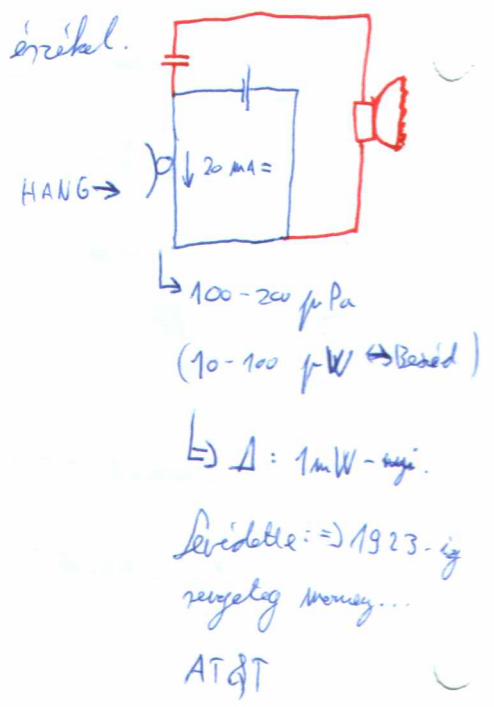 érzékel.
20 mA =
HANG →
↳ 100-200 μPa
(10-100 μW ↔ Beszéd)
↳ Δ: 1mW-nyi.
Levédette: ⇒ 1923-ig
rengeteg money...
AT&T